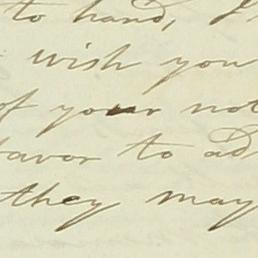 to hand, I
wish you
of your not
favor to ad
they may